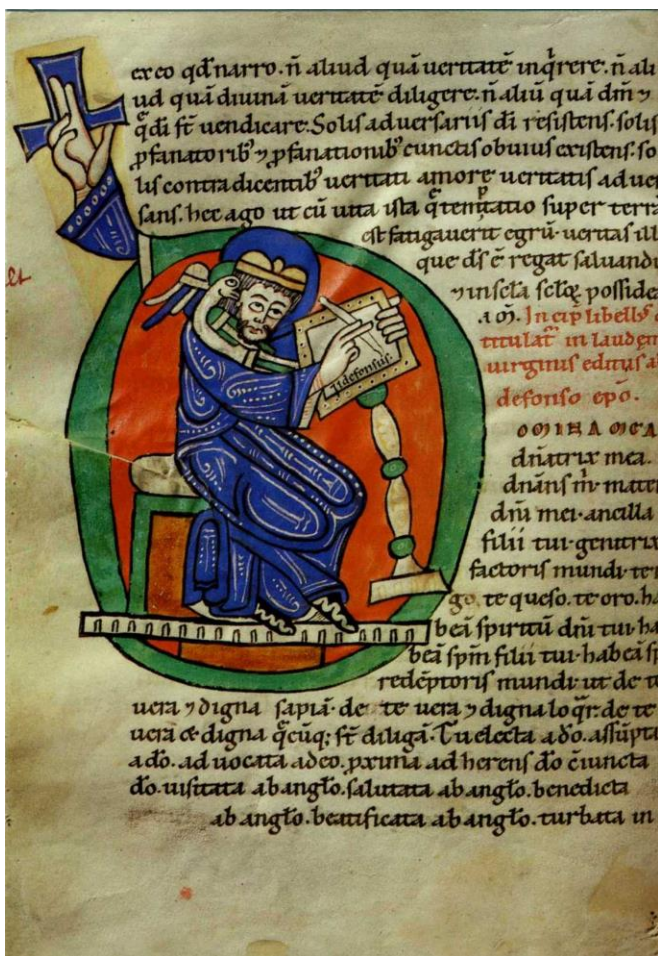 ex eo qđ narro. n̄ aliud quā ueritatē inq̊rere. n̄ ali
ud quā diuinā ueritatē diligere. n̄ aliū quā dm̄ ⁊
q̊ di s̄t uendicare. Solis aduersariis di resistens. solis
ꝓfanatorib' ⁊ ꝓfanationib' cunctis obuius existens. so
lis contradicentib' ueritati amore ueritatis aduer
sans. hec ago ut cū uita ista q̄ temptatio super terrā
est fatigauerit egrū. ueritas ill
que ds̄ ē regat saluandū
⁊ in scl̄a scl̄oꝝ posside
a m̄. Incip libellus
titulat' in laudem
uirginis editus a
defonso epō.
OMINA MEA
dn̄atrix mea.
dn̄ans m̄. mater
dn̄i mei. ancilla
filii tui. genitrix
factoris mundi. te
go. te queso. te oro. ha
beā spiritū dn̄i tui. ha
beā spm̄ filii tui. habeā sp
redēptoris mundi. ut de te
uera ⁊ digna sapiā. de te uera ⁊ digna loq̊r. de te
uera & digna q̄cūq; s̄t diligā. Tu electa a dō. assūpta
a dō. aduocata a deo. ꝓxima adherens dō c̄iuncta
dō. uisitata ab anglo. salutata ab anglo. benedicta
ab anglo. beatificata ab anglo. turbata in
Ildefonsus.